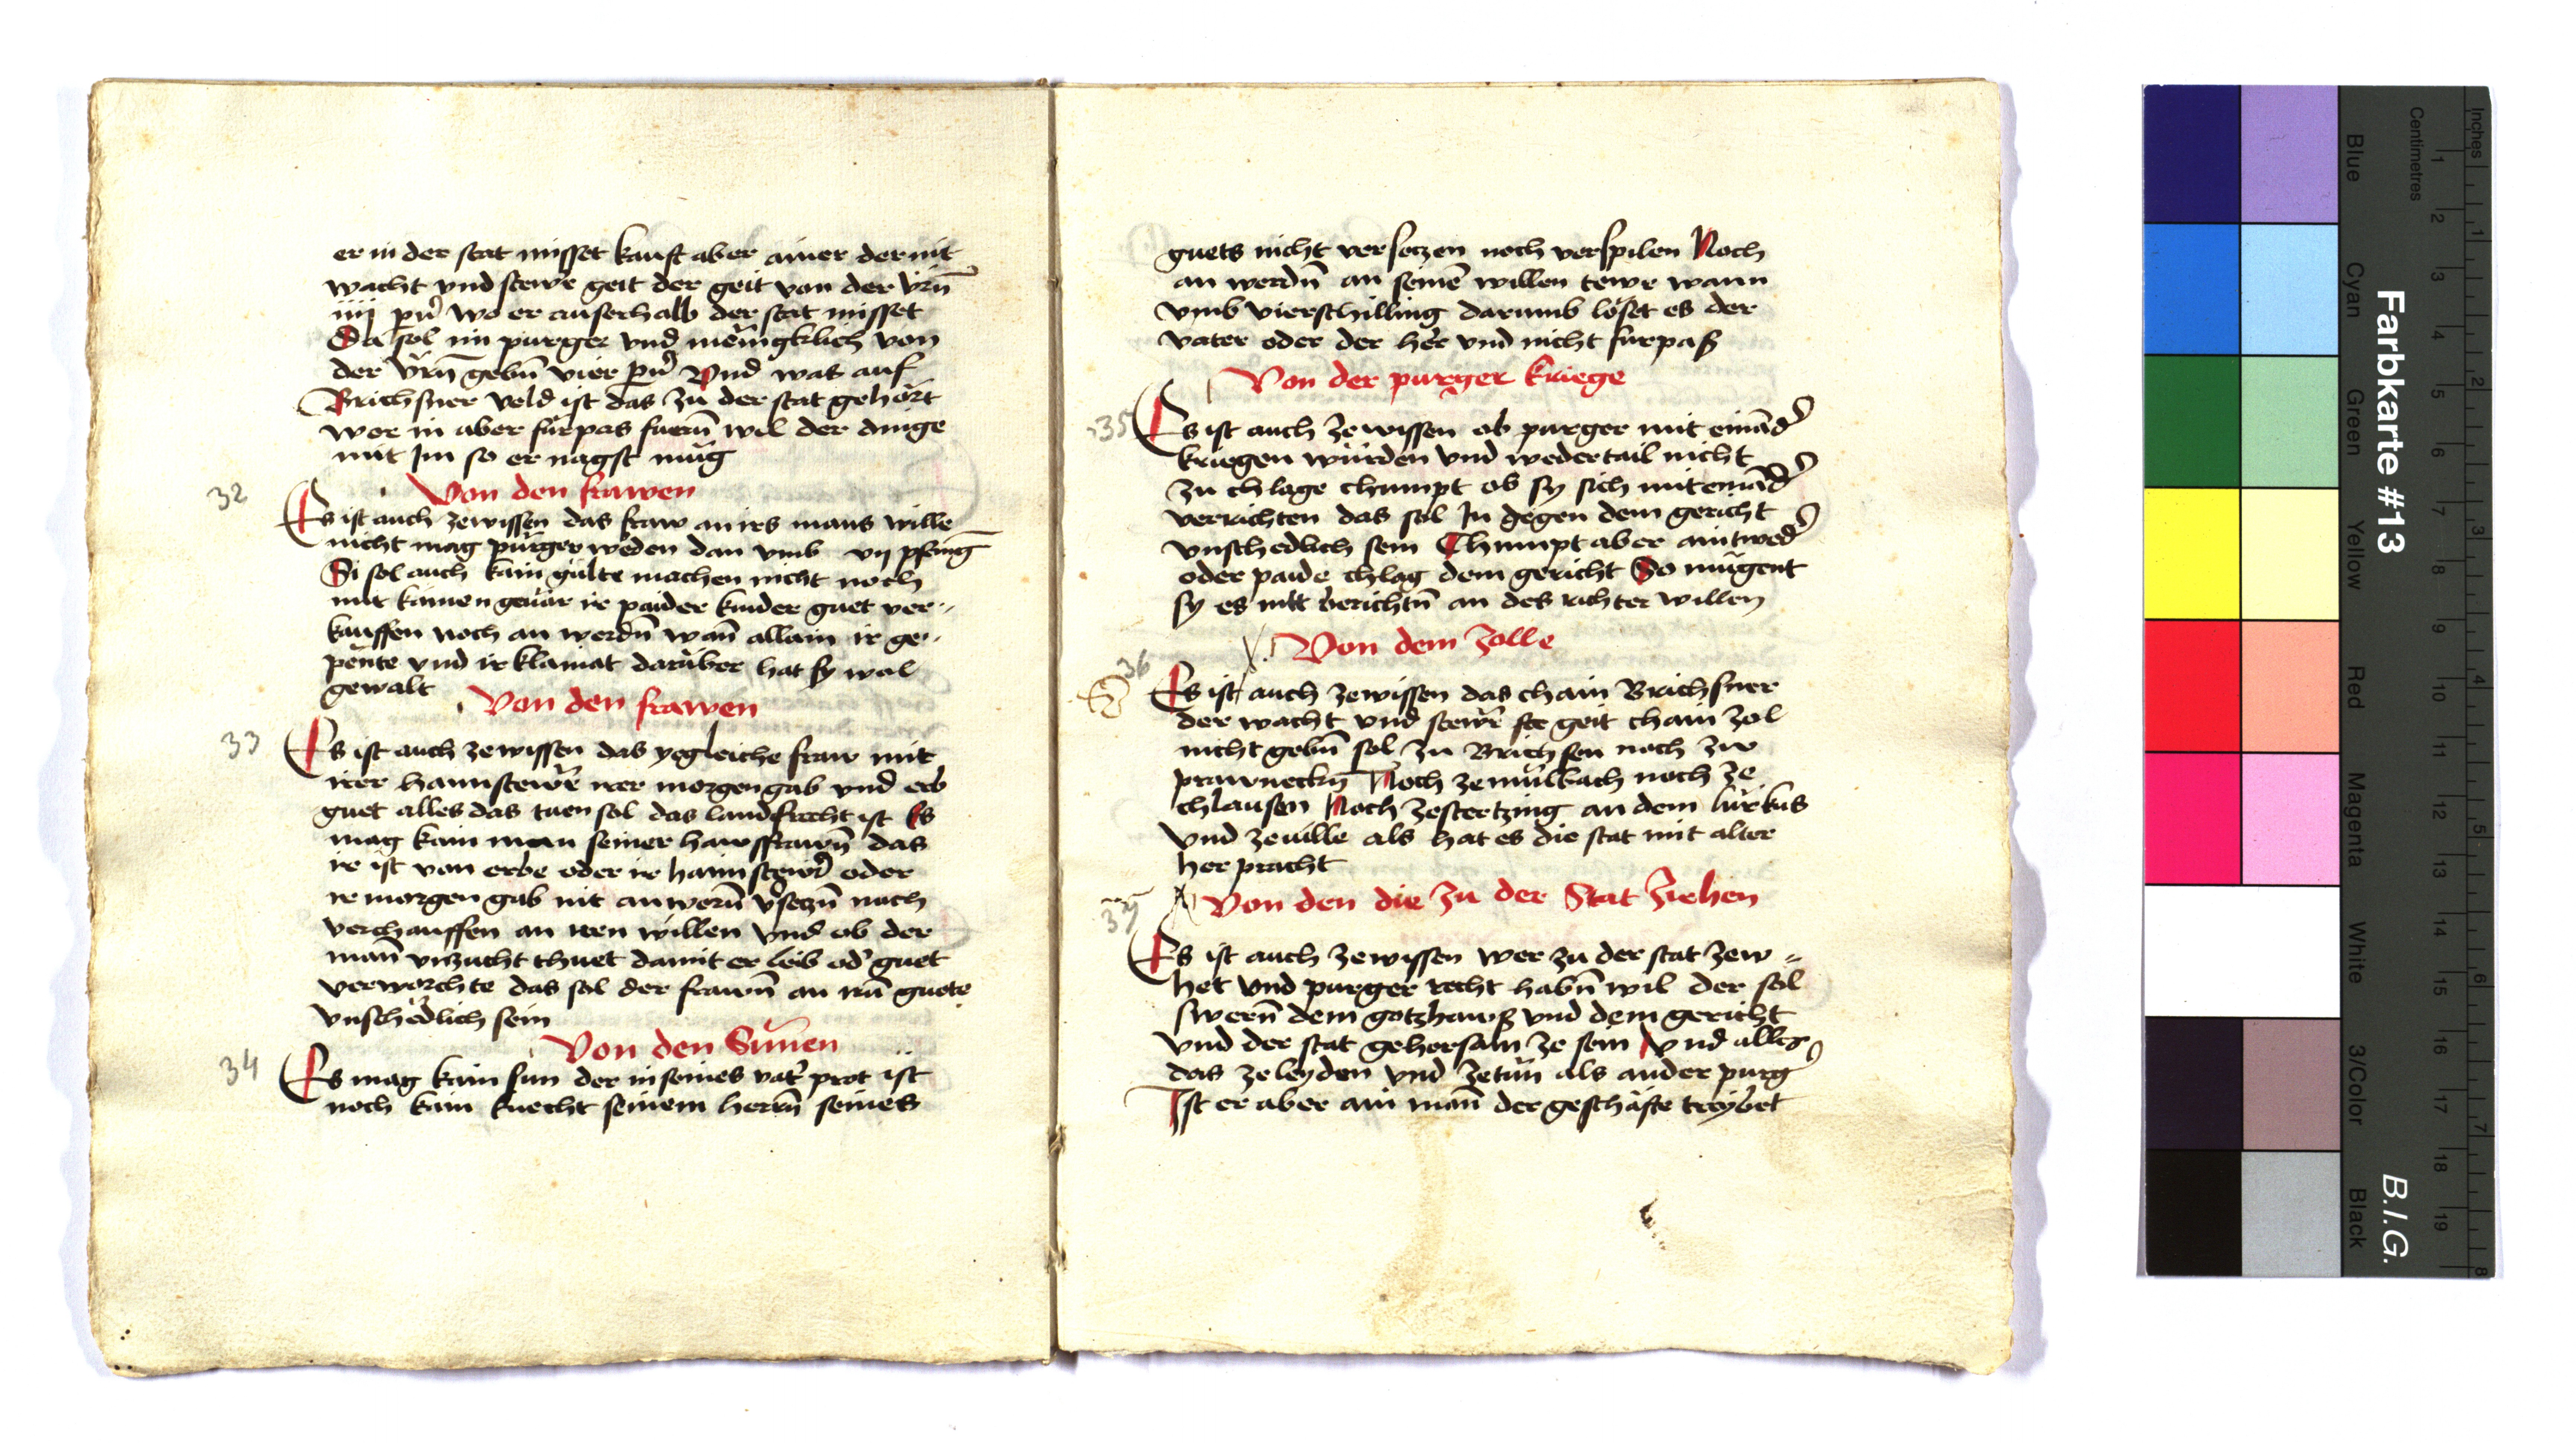 er in der stat misset kauft aber ainer der nit
wacht vnd stewr geit der geit von der vrñ
iiij pñ wo er auserhalb der stat misset
Da sol im purger vnd mengklich von
der vrñ gebñ vier pñ Vnd was auf
Brichsner veld ist das zu der stat gehort
wer in aber furpas furñ wil der dinge
mit Im so er nagst mug
32
Von den frawen
Es ist auch zewissen das fraw an irs mans wille
nicht mag purger weden dan vmb vij pfenig
Si sol auch kain gulte machen nicht noch
mit kainen geuar ir paider kinder guet ver-
kauffen noch an werdñ wañ allain ir ge-
pente vnd ir klainat daruber hat sy wol
gewalt
Von den frawen
33
Es ist auch zewissen das yegleiche fraw mit
irer haimstewre irer morgengab vnd erb
guet alles das tuen sol das landsrecht ist Es
mag kain man seiner hawsfrawñ das
ir ist von erbe oder ir haimstewr oder
ir morgen gab nit anwerñ vsetzñ noch
verchauffen an iren willen vnd ob der
mañ vnzucht thuet damit er leib od guet
verworchte das sol der frawñ an irñ guete
vnschedlich sein
Von den Sunen
34
Es mag kain sun der in seines vat prot ist
noch kain knecht seinem herrñ seines
guets nicht versetzen noch verspilen Noch
an werdñ an seinē willen tewr wann
vmb vierschilling darumb loset es der
vater oder der her vnd nicht furpaß
Von der purger kriege
35
Es ist auch zewissen ob purger mit einād
kriegen wurden vnd wedertail nicht
zu chlage chumpt ob sy sich miteinād
verrichten das sol In gegen dem gericht
vnschedlich sein Chumpt aber aintwed
oder paide chlag dem gericht So mugent
sy es nit berichtñ an des richter willen
Von dem zolle
36
Es ist auch zewissen das chain Brichsner
der wacht vnd stewr geit chain zol
nicht gebñ sol zu Brichsen noch zw
prawneckñ Noch zemulbach noch ze
chlausen Noch zestertzing an dem lurkus
vnd zeuille als hat es die stat mit alter
her pracht
Von den die zu der Stat ziehen
37
Es ist auch zewissen wer zu der stat zew-
het vnd purger recht habñ wil der sol
swerñ dem gotzhawß vnd dem gericht
vnd der stat gehorsam ze sein vnd alles
das zeleyden vnd zetun als ander purg
Ist er aber ain mañ der geschafte treybet
Farbkarte #13
B.I.G.
Inches
Centimetres
Blue
Cyan
Green
Yellow
Red
Magenta
White
3/Color
Black
1 2 3 4 5 6 7 8 9 10 11 12 13 14 15 16 17 18 19
1 2 3 4 5 6 7 8